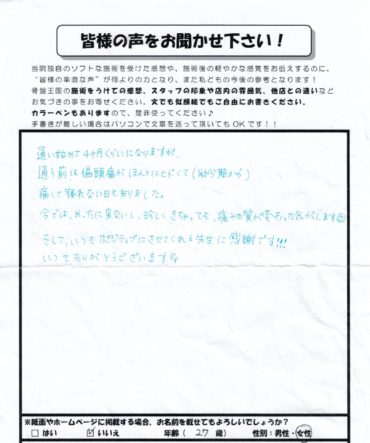 皆様の声をお聞かせ下さい！
当院独自のソフトな施術を受けた感想や、施術後の軽やかな感覚をお伝えするのに、
“皆様の率直な声”が何よりの力となり、また私どもの今後の参考となります！
骨盤王国の施術をうけての感想、スタッフの印象や店内の雰囲気、他店との違いなど
お気づきの事をお寄せください。文でも似顔絵でもご自由にお書きください。
カラーペンもありますので、是非使ってください♪
手書きが難しい場合はパソコンで文章を送って頂いてもOKです！！
通い始めて4ヶ月くらいになりますが、
通う前は偏頭痛がほんとにひどくて（幼少期から）
痛くて寝れない日もありました。
今では、めったに来ないし、珍しくきちゃっても、痛みの質が変わった気がします
そして、いつもポジティブにさせてくれる先生に感謝です!!!
いつもありがとうございます
※紙面やホームページに掲載する場合、お名前を載せてもよろしいでしょうか？
□ はい ☑ いいえ 年齢（ 27 歳） 性別：男性・女性